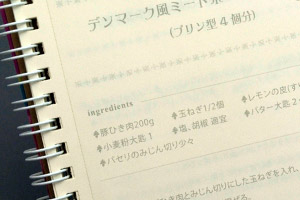 デンマーク風ミート
(プリン型4個分)
ingredients
◆豚ひき肉200g ◆玉ねぎ1/2個 ◆レモンの皮(す
◆小麦粉大匙1 ◆塩、胡椒 適宜 ◆バター大匙2
◆パセリのみじん切り少々
き肉とみじん切りにした玉ねぎを入れ、